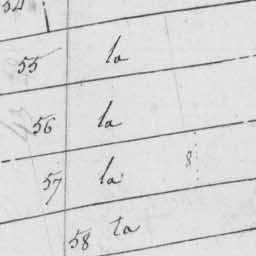 54
55 la
56 la
57 la 8
58 ta